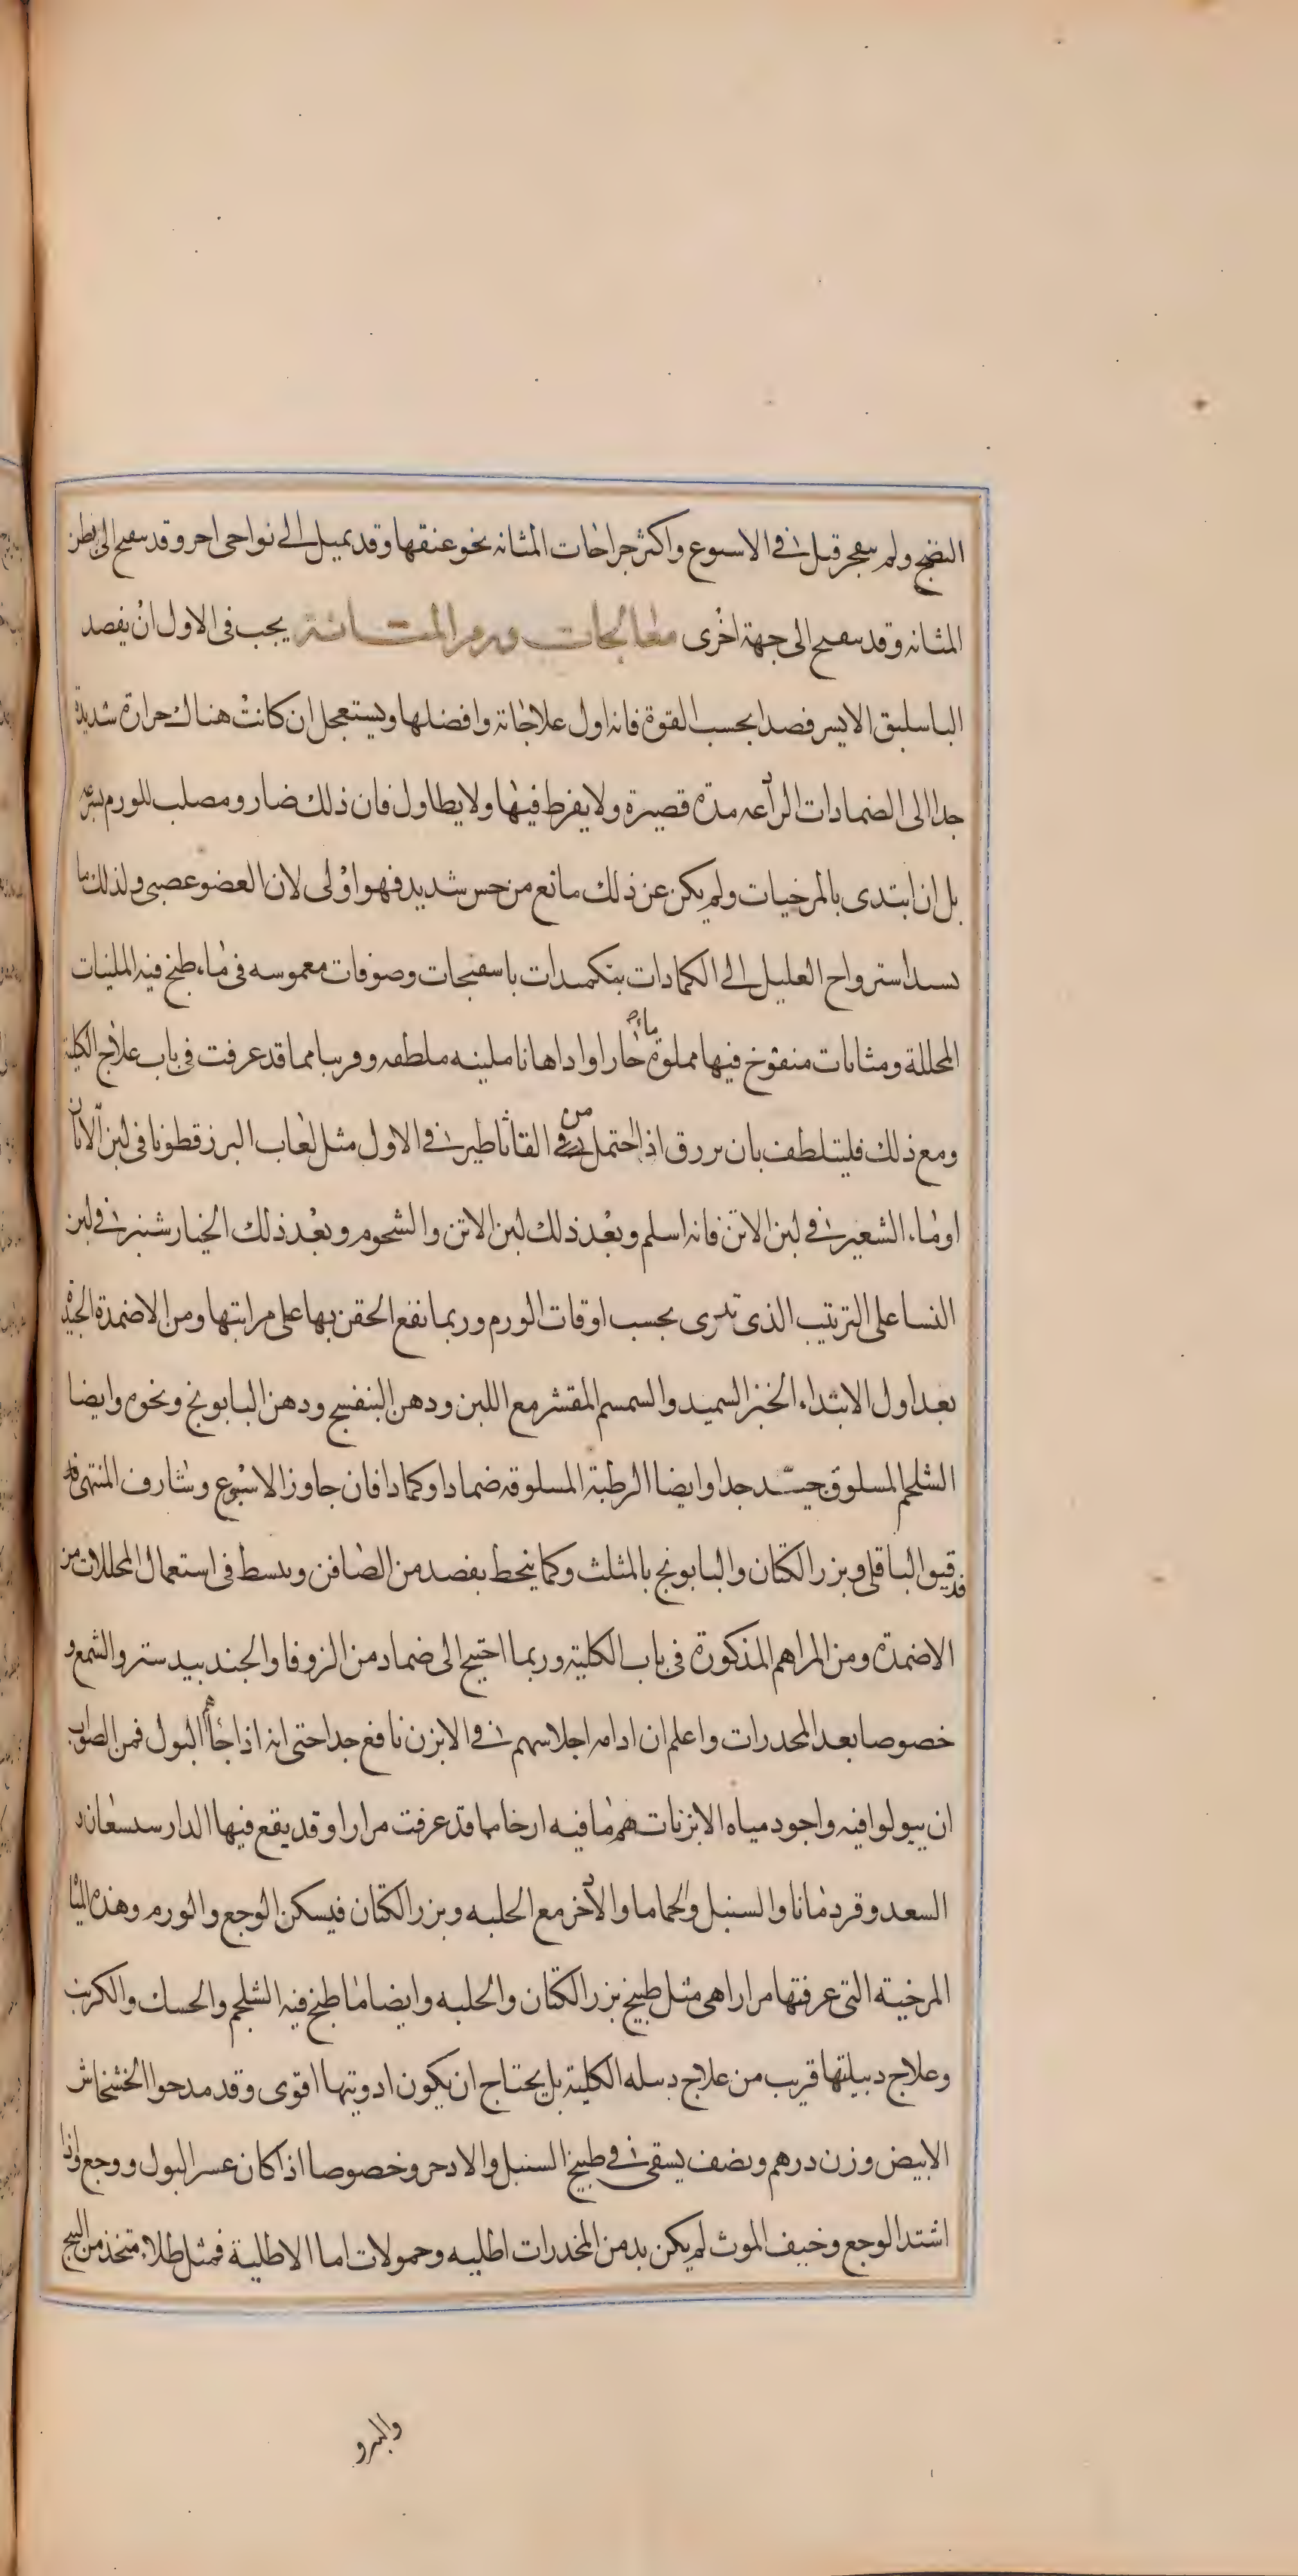 النضج ولم ينفجر قبل في الاسبوع واكثر جراحات المثانه نحو عنقها وقد يميل الى نواحى اخر وقد ينفتح الى بطن
المثانه وقد ينفتح الى جهة اخرى معالجات ورم المثانة يجب فى الاول ان يفصد
الباسليق الايسر فصدا بحسب القوة فانه اول علاجاته وافضلها ويستعجل ان كانت هناك حرارة شديدة
جدا الى الضمادات الرادعه مدة قصيرة ولا يفرط فيها ولا يطاول فان ذلك ضار ومصلب للورم بسرعه
بل ان ابتدى بالمرخيات ولم يكن عن ذلك مانع من حس شديد فهو اولى لان العضو عصبى ولذلك ما
استرواح العليل الى الكمادات بتكميدات باسفنجات وصوفات مغموسه فى ماء طبخ فيه الملينات
المحللة ومثانات منفوخ فيها مملوة ماء حارا او اداهانا ملينه ملطفه وقريبا مما قد عرفت فى باب علاج الكلية
ومع ذلك فليتلطف بان يزرق اذا احتمل من فى القاثاطير في الاول مثل لعاب البزرقطونا فى لبن الاتان
او ماء الشعير في لبن الاتن فانه اسلم وبعد ذلك لبن الاتن والشحوم وبعد ذلك الخيارشنبر في لبن
النسا على الترتيب الذى تدرى بحسب اوقات الورم وربما نفع الحقن بها على مراتبها ومن الاضمدة الجيدة
بعد اول الابتداء الخبز السميد والسمسم المقشر مع اللبن ودهن البنفسج ودهن البابونج ونحوه وايضا
الشلجم المسلوق جيد جدا وايضا الرطبة المسلوقه ضمادا وكمادا فان جاوز الاسبوع وشارف المنتهى
فدقيق الباقلى وبزر الكتان والبابونج بالمثلث وكما ينحط بفصد من الصافن ويبسط فى استعمال المحللات من
الاضمدة ومن المراهم المذكورة فى باب الكلية وربما احتيج الى ضماد من الزوفا والجندبيدستر والشمع و
خصوصا بعد المخدرات واعلم ان ادامه اجلاسهم في الابزن نافع جدا حتى انه اذا جاءهم البول فمن الصواب
ان يبولوا فيه واجود مياه الابزنات هم ما فيه ارخا مما قد عرفت مرارا وقد يقع فيها الدارسيسعان و
السعد وقردمانا والسنبل والحماما والاذخر مع الحلبه وبزر الكتان فيسكن الوجع والورم وهذه المياه
المرخية التى عرفتها مرارا هى مثل طبيخ بزر الكتان والحلبه وايضا ما طبخ فيه الشلجم والحسك والكرنب
وعلاج دبيلتها قريب من علاج دبيله الكلية بل يحتاج ان يكون ادويتها اقوى وقد مدحوا الخشخاش
الابيض وزن درهم ونصف يسقى في طبيخ السنبل والاذخر وخصوصا اذا كان عسر البول ووجع واذا
اشتد الوجع وخيف الموت لم يكن بد من المخدرات اطليه وحمولات اما الاطلية فمثل طلاء متخذ من البنج